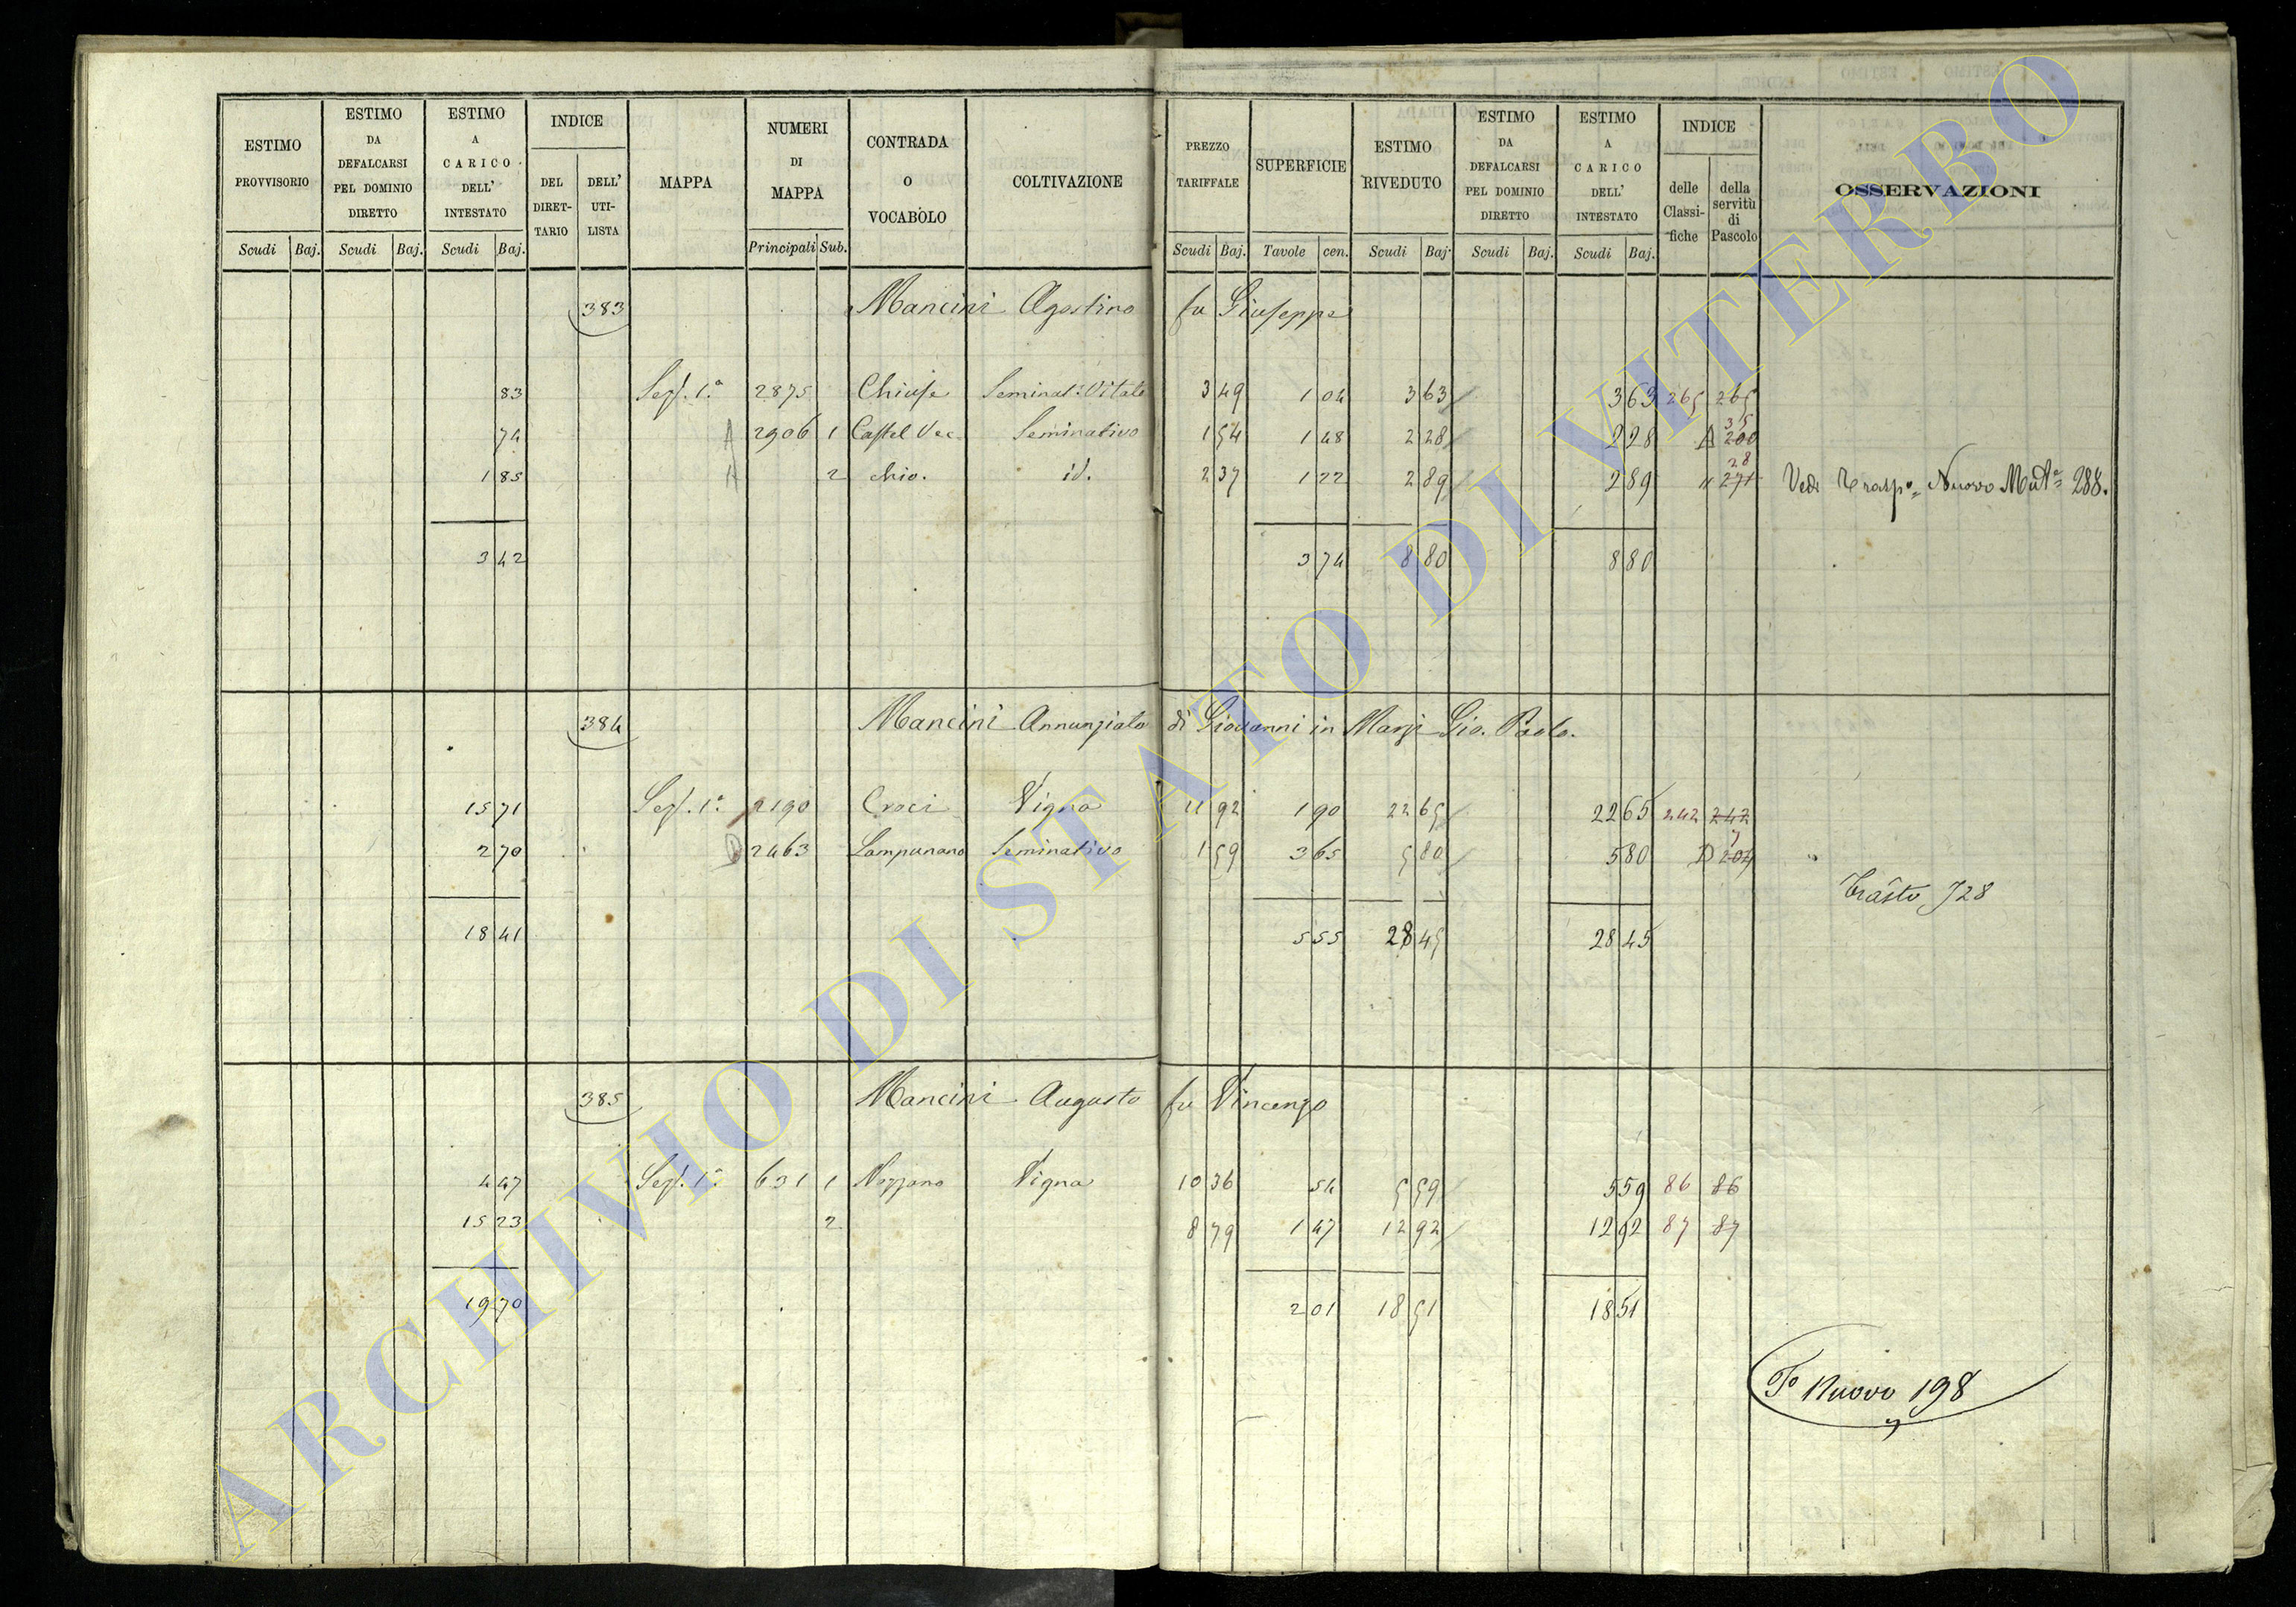 ESTIMO PROVVISORIO | ESTIMO DA DEFALCARSI PEL DOMINIO DIRETTO | ESTIMO A CARICO DELL' INTESTATO | INDICE | MAPPA | NUMERI DI MAPPA | CONTRADA O VOCABOLO | COLTIVAZIONE | PREZZO TARIFFALE | SUPERFICIE | ESTIMO RIVEDUTO | ESTIMO DA DEFALCARSI PEL DOMINIO DIRETTO | ESTIMO A CARICO DELL' INTESTATO | INDICE | OSSERVAZIONI
DEL DIRETTARIO | DELL' UTILISTA | delle Classifiche | della servitù di Pascolo
Scudi | Baj. | Scudi | Baj. | Scudi | Baj. | Principali | Sub. | Scudi | Baj. | Tavole | cen. | Scudi | Baj. | Scudi | Baj. | Scudi | Baj.
383 Mancini Agostino fu Giuseppe
83 | Sez. 1.a | 2875 | Chiuse | Seminat. Vitato | 3 49 | 1 04 | 3 63 | 3 63 | 265 | 265
74 | A | 2906 | 1 | Castel Vec | Seminativo | 1 54 | 1 48 | 2 28 | 2 28 | A | 35 200
1 85 | A | 2 | chio. | id. | 2 37 | 1 22 | 2 89 | 2 89 | " | 28 271 | Vedi Trasp.o Nuovo 288.
3 42 | 3 74 | 8 80 | 8 80
384 Mancini Annunziata di Giovanni in Marzi Gio. Paolo.
15 71 | Sez. 1.a | 2190 | Croci | Vigna | 11 92 | 1 90 | 22 65 | 22 65 | 242 | 242
2 70 | D | 2463 | Lampunano | Seminativo | 1 59 | 3 65 | 5 80 | 5 80 | D | 7 204
728
18 41 | 5 55 | 28 45 | 28 45
385 Mancini Augusto fu Vincenzo
4 47 | Sez. 1.a | 631 | 1 | Nozzano | Vigna | 10 36 | 54 | 5 59 | 5 59 | 86 | 86
15 23 | 2 | 8 79 | 1 47 | 12 92 | 12 92 | 87 | 87
19 70 | 2 01 | 18 51 | 18 51
To Nuovo 198
ARCHIVIO DI STATO DI VITERBO